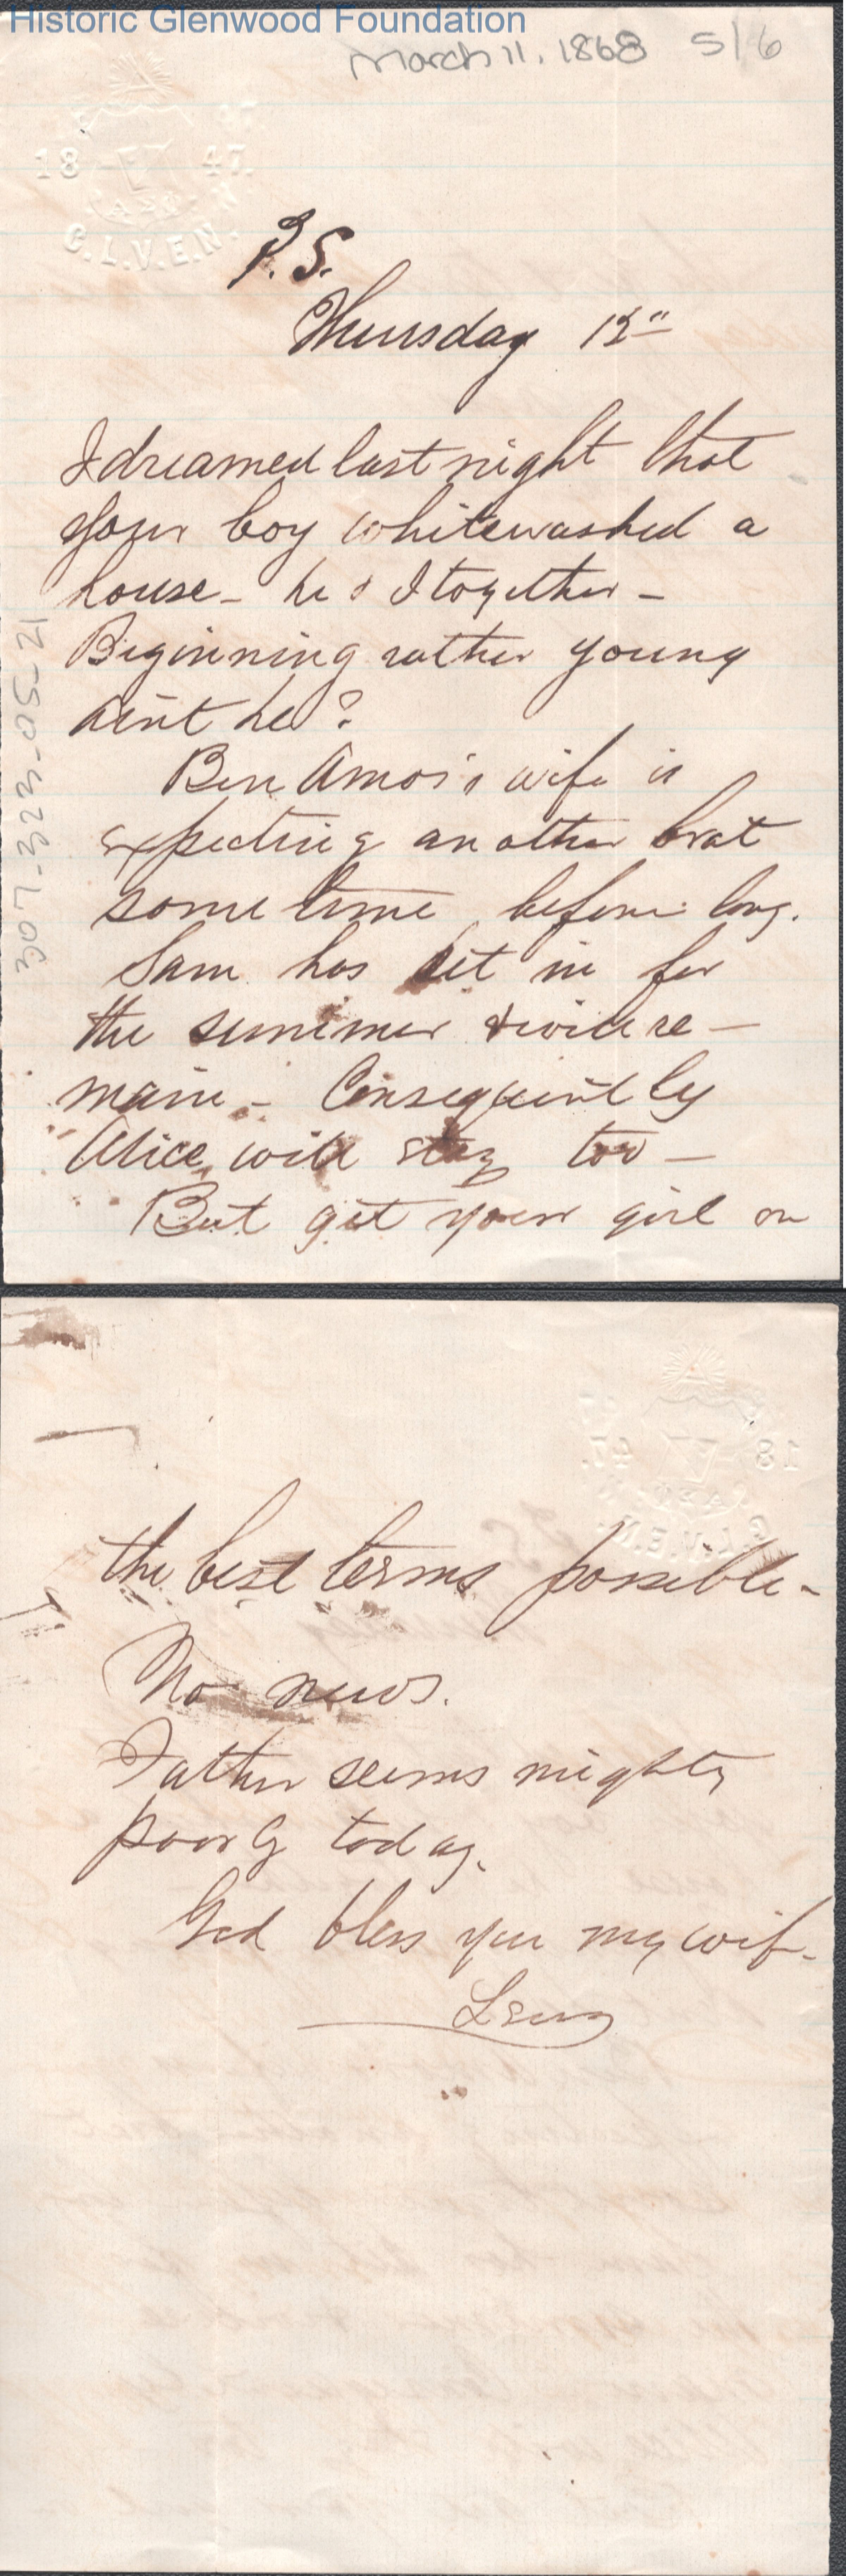 Historic Glenwood Foundation
March 11, 1868 5/6
18 47.
C.L.V.E.N.
P.S.
Thursday 12"
I dreamed last night that
your boy whitewashed a
house - he & I together -
Beginning rather young
aint he?
Ben Amos's wife is
expecting another brat
some time before long.
Sam has set in for
the summer & will re-
main - Consequently
Alice will stay too -
But get your girl on
307-323-05-21
the best terms possible -
No news.
Father seems mighty
poorly today.
God bless you my wife.